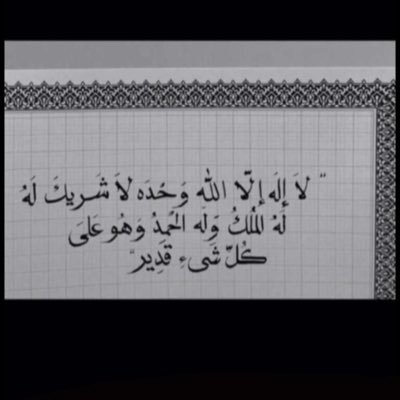 " لاَ إِلَه إِلّا الله وَحْدَه لاَ شَرِيكَ لَهُ
لَهُ الْمُلْكُ وَلَه الْحَمدُ وَهُو عَلىَ
كُلّ شَىءٍ قَدِير "